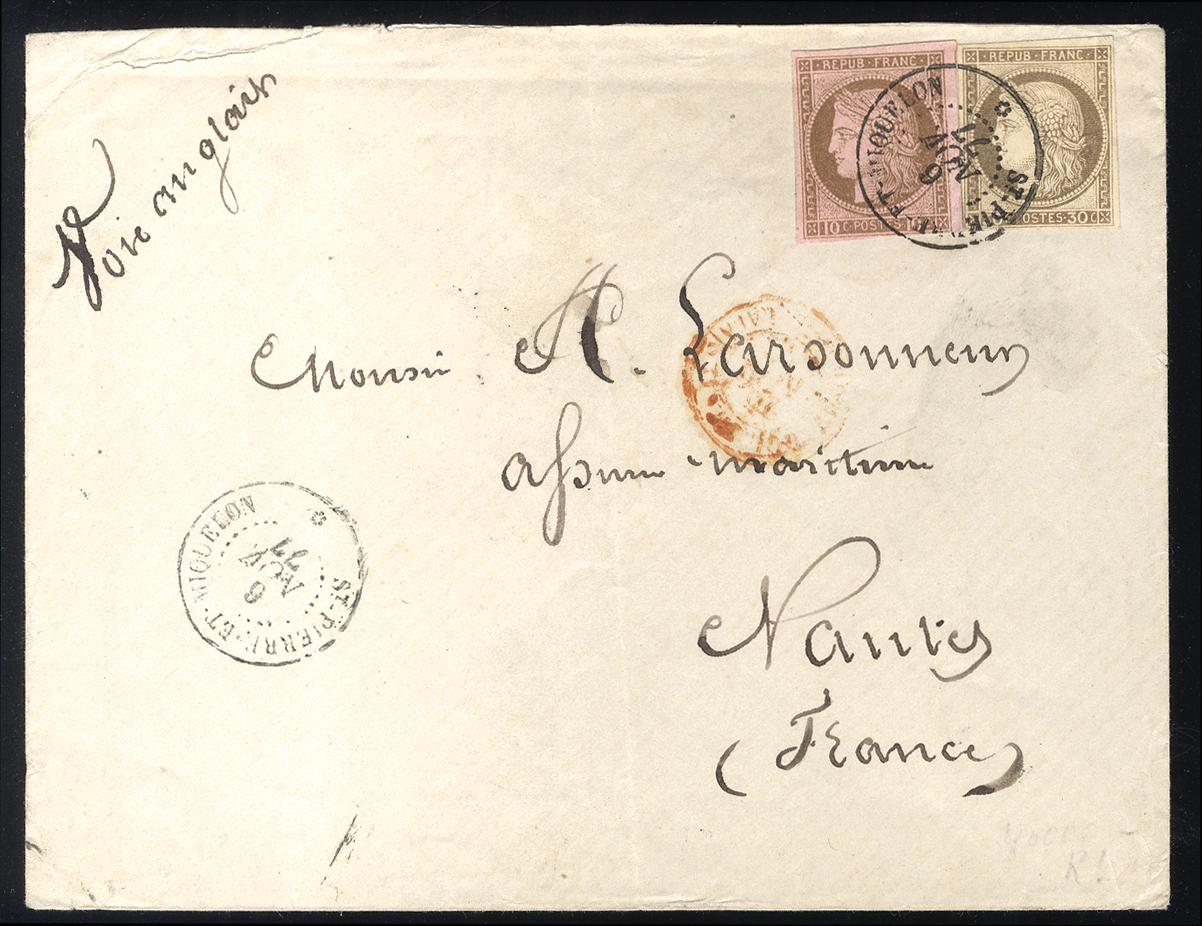 Voie anglais
REPUB · FRANC ·
10 C · POSTES · 10
REPUB · FRANC
POSTES · 30 C
ST-PIERRE-ET-MIQUELON
6
NOV
77
Monsir A. Larsonneur
assure maritime
ST-PIERRE-ET-MIQUELON
6
NOV
77
Nantes
(France)